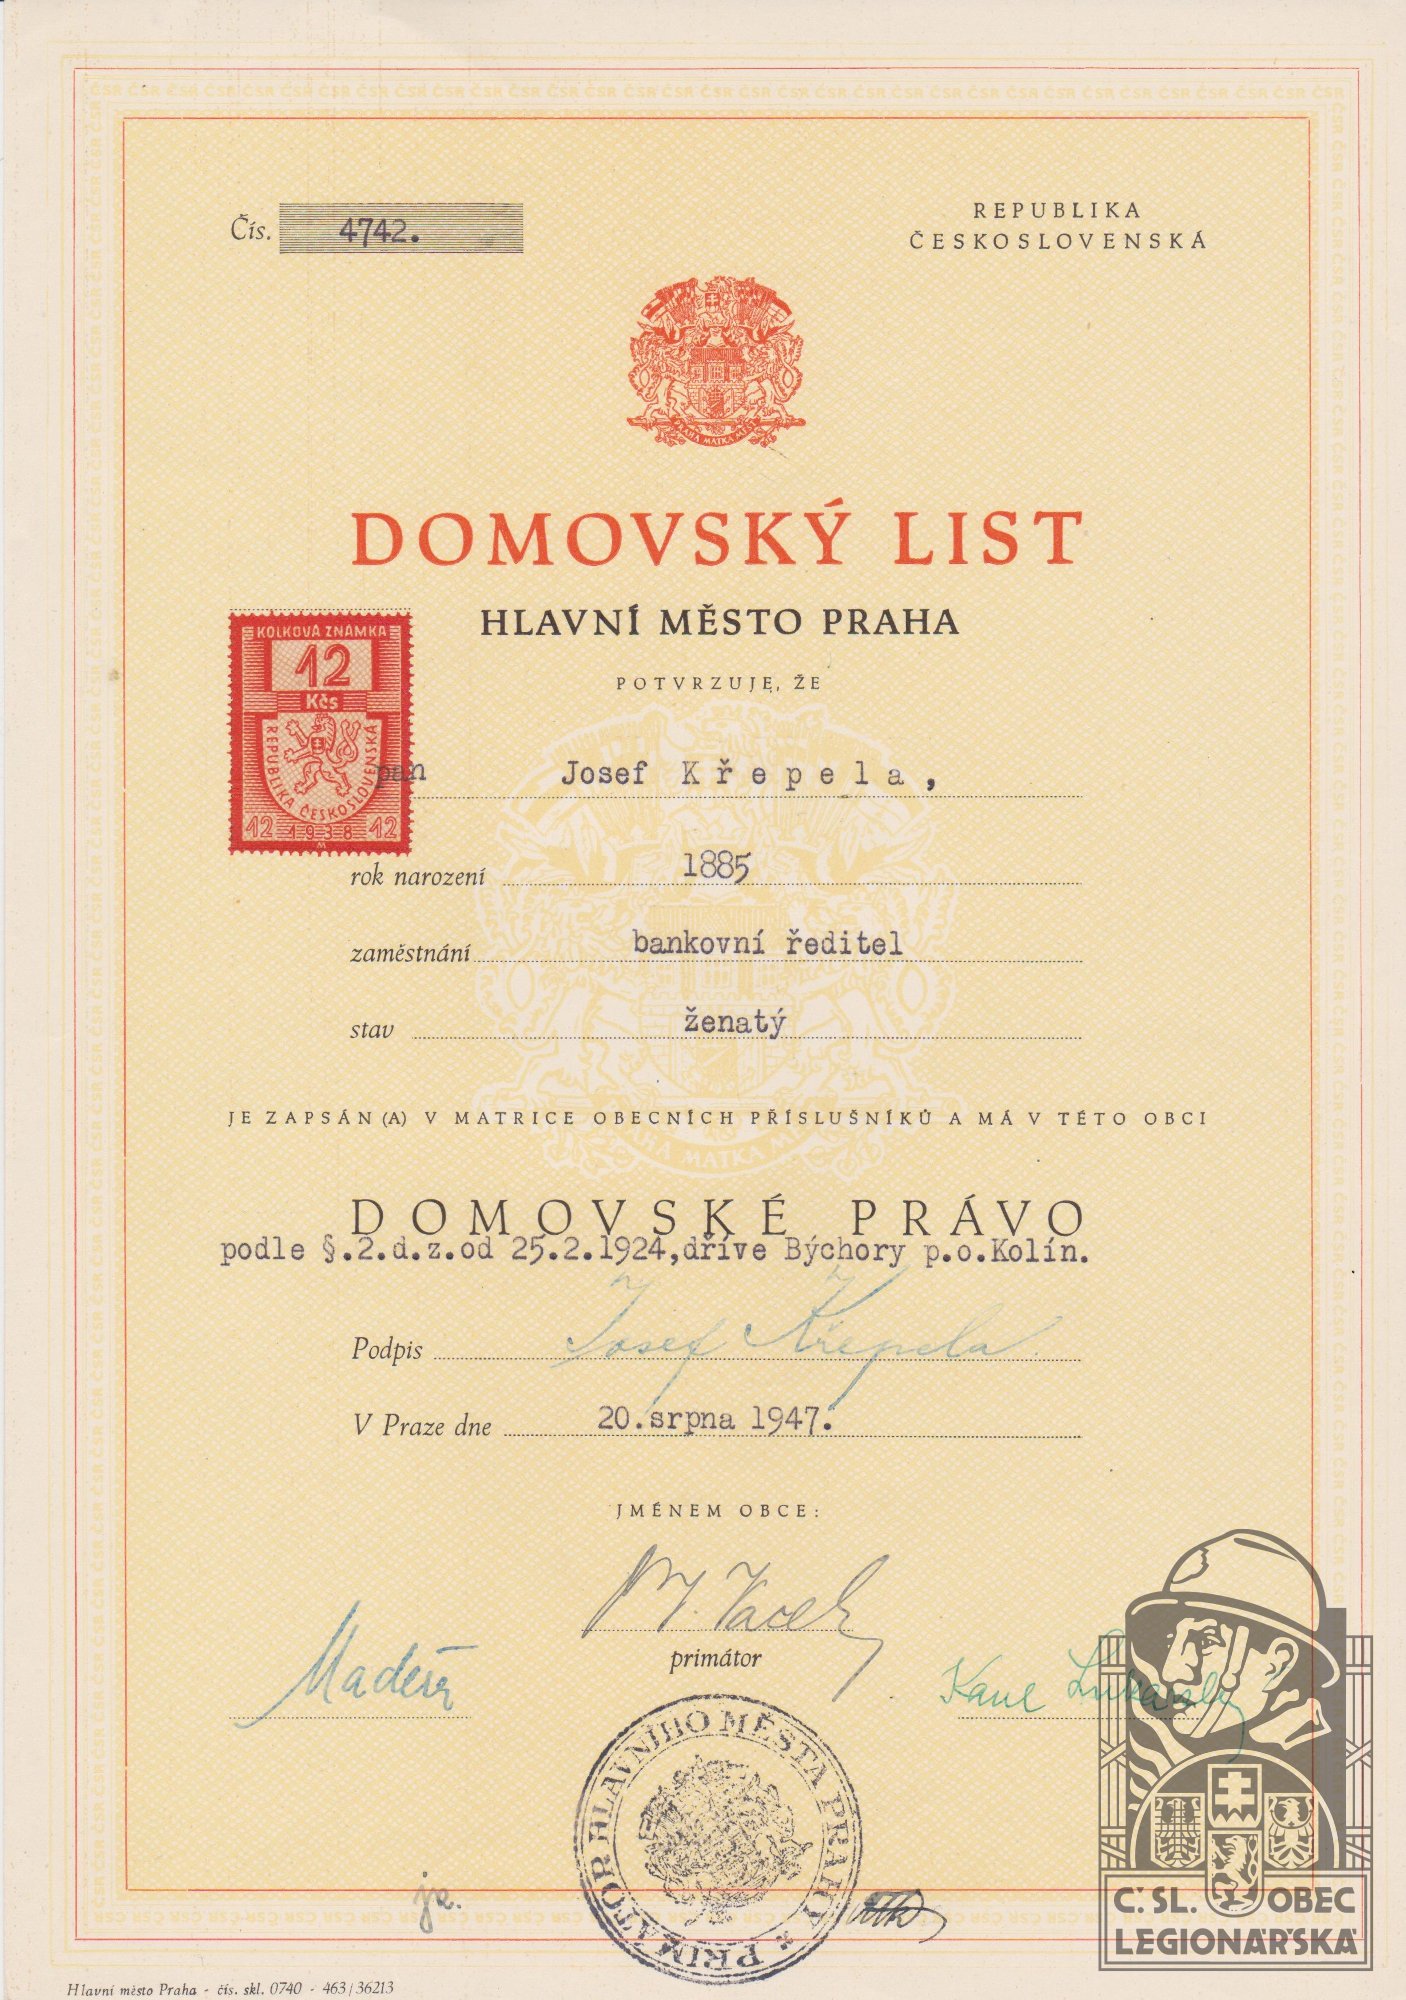 Čís. 4742.
REPUBLIKA
ČESKOSLOVENSKÁ
PRAHA MATKA MĚST
DOMOVSKÝ LIST
HLAVNÍ MĚSTO PRAHA
POTVRZUJE, ŽE
KOLKOVÁ ZNÁMKA
12
Kčs
REPUBLIKA ČESKOSLOVENSKÁ
12 1938 12
M
pan Josef Křepela,
rok narození 1885
zaměstnání bankovní ředitel
stav ženatý
JE ZAPSÁN (A) V MATRICE OBECNÍCH PŘÍSLUŠNÍKŮ A MÁ V TÉTO OBCI
DOMOVSKÉ PRÁVO
podle §.2.d.z.od 25.2.1924,dříve Býchory p.o.Kolín.
Podpis Josef Křepela
V Praze dne 20.srpna 1947.
JMÉNEM OBCE:
Vacek
primátor
PRIMÁTOR HLAVNÍHO MĚSTA PRAHY
Č.SL. OBEC
LEGIONÁŘSKÁ
Hlavní město Praha - čís. skl. 0740 - 463/36213